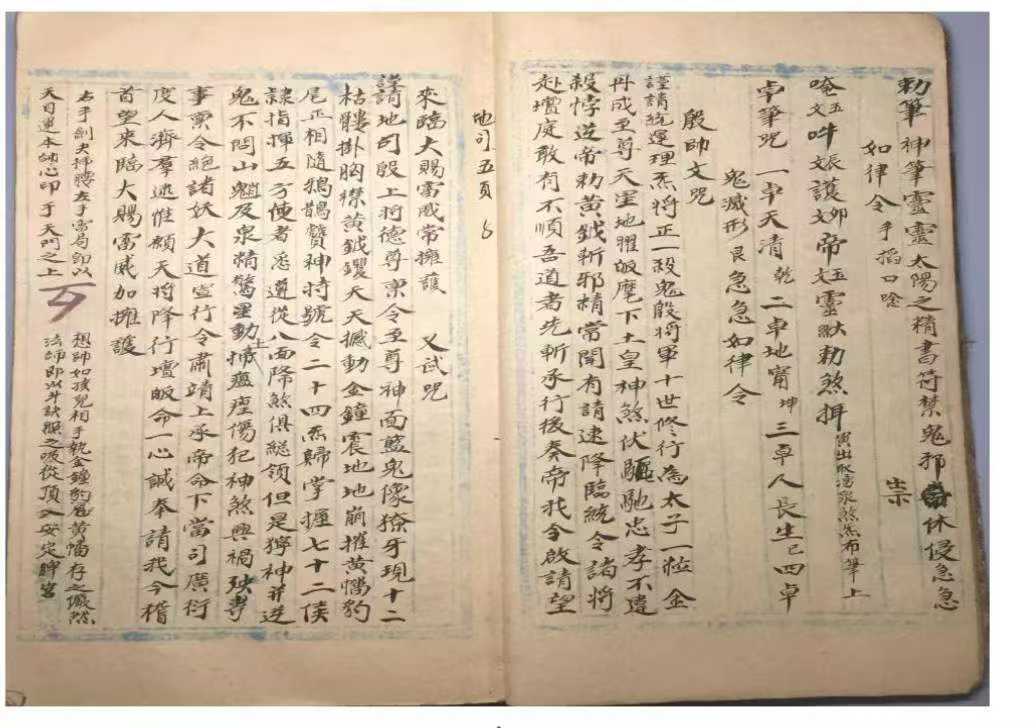 勅筆 神筆靈靈太陽之精書符禁鬼邪祟休侵急急
如律令 手掐口唸
唵 吽 護 帝 靈獸勅煞揖
卓筆咒 一卓天清乾二卓地甯坤三卓人長生巳四卓
鬼滅形艮急急如律令
殷帥文咒
謹請統運理炁將正一殺鬼殷將軍十世修行為太子一粒金
丹成至尊天罡地曜皈麾下土皇神煞伏驅馳忠孝不違
殺悖逆帝勅黃鉞斬邪精常聞有請速降臨統令諸將
赴壇庭敢有不順吾道者先斬承行後奏帝我今啟請望
地司五頁
來臨大賜雷威常擁護 又試咒
謹請地司殷上將德尊稟令至尊神面藍鬼像獠牙現十二
枯髏掛胸襟黃鉞钁天天撼動金鐘震地地崩摧黃旛豹
尾正相隨鴉鵲贊神將號令二十四炁歸掌握七十二侯
隸指揮五方使者悉遵從八面降煞俱総領但是獰神并逆
鬼不問山魈及泉精驚星動土掃瘟㾐傷犯神煞興禍殃專
事稟令絕諸妖大道宣行令肅靖上承帝命下當司廣衍
度人濟羣迷惟願天將降行壇皈命一心誠奉請我今稽
首望來臨大賜雷威加擁護
右手劍夬 左手雷局印以
天目運本帥心印于天門之上
想帥如孩兒相手執金鐘豹尾黃旛存之
法師即以斗訣照之吸從頂入安定脾宮